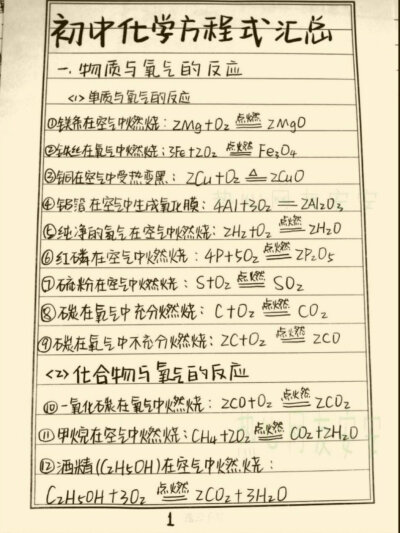 初中化学方程式汇总
一.物质与氧气的反应
<1>单质与氧气的反应
①镁条在空气中燃烧:2Mg+O₂ 点燃 2MgO
②铁丝在氧气中燃烧:3Fe+2O₂ 点燃 Fe₃O₄
③铜在空气中受热变黑:2Cu+O₂ △ 2CuO
④铝箔在空气中生成氧化膜:4Al+3O₂=2Al₂O₃
⑤纯净的氢气在空气中燃烧:2H₂+O₂ 点燃 2H₂O
⑥红磷在空气中燃烧:4P+5O₂ 点燃 2P₂O₅
⑦硫粉在空气中燃烧:S+O₂ 点燃 SO₂
⑧碳在氧气中充分燃烧:C+O₂ 点燃 CO₂
⑨碳在氧气中不充分燃烧:2C+O₂ 点燃 2CO
<2>化合物与氧气的反应
⑩一氧化碳在氧气中燃烧:2CO+O₂ 点燃 2CO₂
⑪甲烷在空气中燃烧:CH₄+2O₂ 点燃 CO₂+2H₂O
⑫酒精(C₂H₅OH)在空气中燃烧:
C₂H₅OH+3O₂ 点燃 2CO₂+3H₂O
1